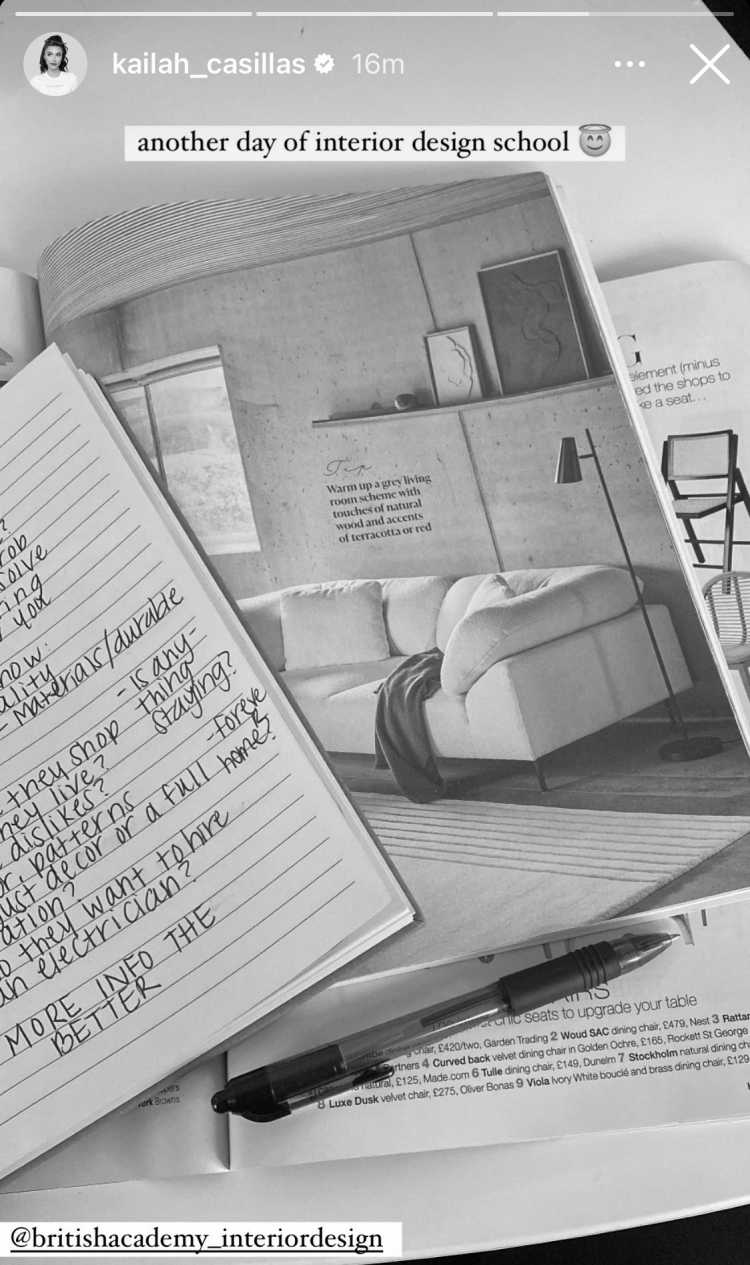 kailah_casillas 16m
another day of interior design school 😇
G
element (minus
ed the shops to
ke a seat...
Tip
Warm up a grey living
room scheme with
touches of natural
wood and accents
of terracotta or red
?
rob
solve
ing
you
now:
ality
- Materials/durable
- Is any-
thing
staying?
they shop
hey live?
dislikes?
or, patterns
ust decor or a full home?
- Foreve
ation?
o they want to hire
an electrician?
MORE INFO THE
BETTER
chic seats to upgrade your table
chair, £420/two, Garden Trading 2 Woud SAC dining chair, £479, Nest 3 Rattan
artners 4 Curved back velvet dining chair in Golden Ochre, £165, Rockett St George
natural, £125, Made.com 6 Tulle dining chair, £149, Dunelm 7 Stockholm natural dining cha
8 Luxe Dusk velvet chair, £275, Oliver Bonas 9 Viola Ivory White bouclé and brass dining chair, £129
ork Browns
@britishacademy_interiordesign